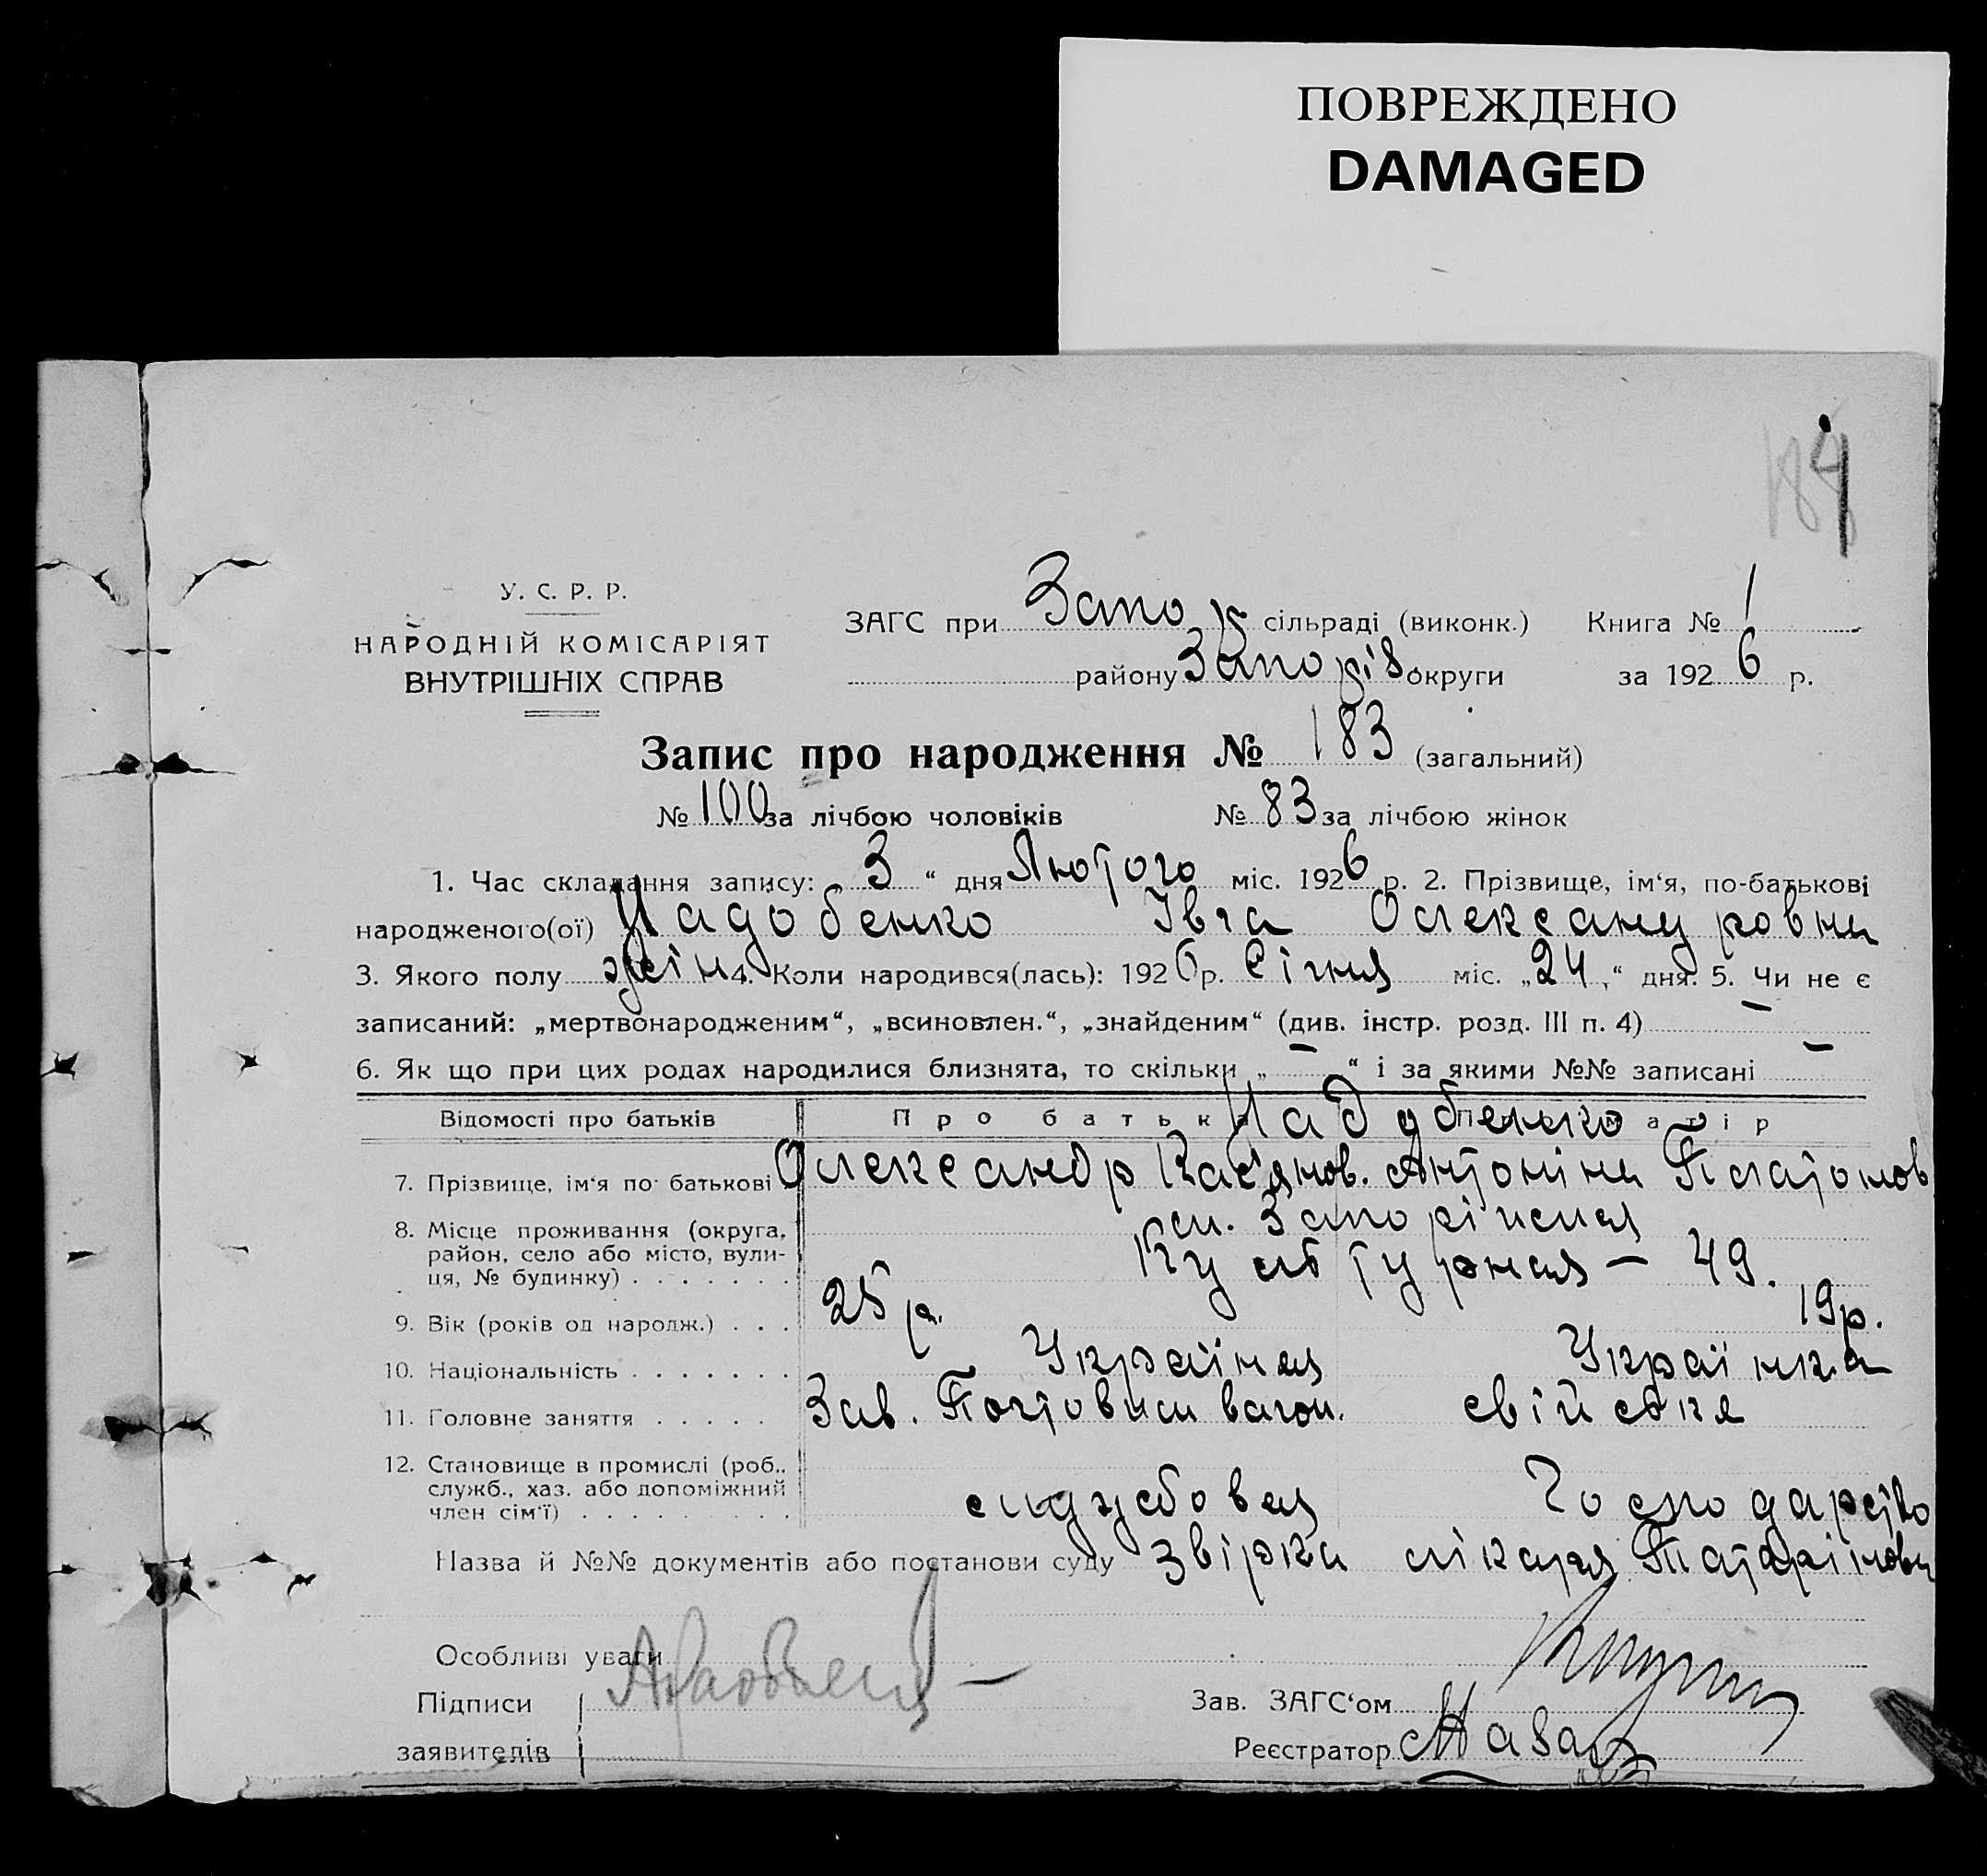 ПОВРЕЖДЕНО
DAMAGED
У. С. Р. Р.
НАРОДНІЙ КОМІСАРІЯТ
ВНУТРІШНІХ СПРАВ
ЗАГС при Запор сільраді (виконк.) Книга № 1
району Запоріз округи за 1926 р.
Запис про народження № 183 (загальний)
№ 100 за лічбою чоловіків № 83 за лічбою жінок
1. Час складання запису: 3 “ дня Лютого міс. 1926 р. 2. Прізвище, ім‘я, по-батькові
народженого(ої) Надобенко Івга Олександровна
3. Якого полу жін 4. Коли народився(лась): 1926 р. Січня міс. „24“ дня. 5. Чи не є
записаний: „мертвонародженим“, „всиновлен.“, „знайденим“ (див. інстр. розд. III п. 4) —
6. Як що при цих родах народилися близнята, то скільки „ — “ і за якими №№ записані —
Відомості про батьків Про батька Про матір
Надобенко
7. Прізвище, ім‘я по батькові Олександр Кас'янов. Антоніна Платонов
8. Місце проживання (округа, район, село або місто, вулиця, № будинку) м. Запоріжжя
Культурная — 49.
9. Вік (років од народж.) . . . 25 р. 19 р.
10. Національність . . . . . . . Українець Українка
11. Головне заняття . . . . . Зав. Почтовим вагон. свійське
12. Становище в промислі (роб., служб., хаз. або допоміжний член сім‘ї) . . . . . . . . . службовец Господарство
Назва й №№ документів або постанови суду Звірка лікаря Татарінова
Особливі уваги
Підписи
заявителів
Зав. ЗАГС‘ом
Реєстратор